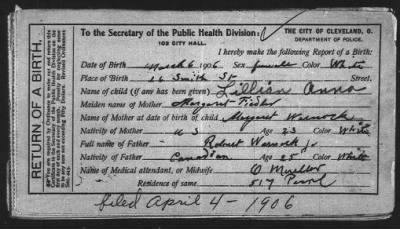 To the Secretary of the Public Health Division:
THE CITY OF CLEVELAND, O.
DEPARTMENT OF POLICE.
102 CITY HALL.
I hereby make the following Report of a Birth:
Date of Birth March 6 1906 Sex female Color White
Place of Birth 16 Smith St Street.
Name of child (if any has been given) Lillian Anna
Maiden name of Mother Margaret
Name of Mother at date of birth of child Margaret
Nativity of Mother U S Age 23 Color White
Full name of Father Robert Jr
Nativity of Father Canadian Age 25 Color White
Name of Medical attendant, or Midwife O Mueller
Residence of same 817 Pearl
filed April 4 - 1906
RETURN OF A BIRTH.